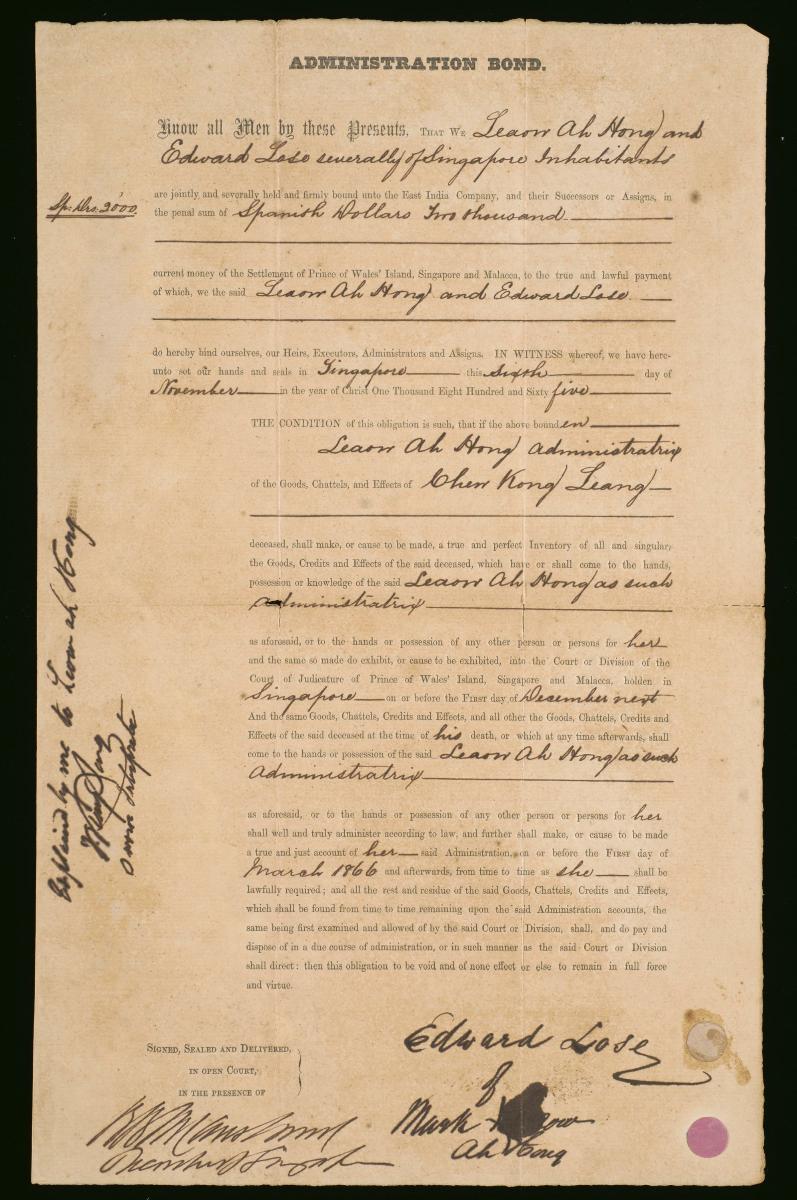 ADMINISTRATION BOND.
Know all Men by these Presents, THAT WE Leaow Ah Hong and
Edward Lose severally of Singapore Inhabitants
Sp: Drs: 2000.
are jointly and severally held and firmly bound unto the East India Company, and their Successors or Assigns, in
the penal sum of Spanish Dollars Two thousand
current money of the Settlement of Prince of Wales' Island, Singapore and Malacca, to the true and lawful payment
of which, we the said Leaow Ah Hong and Edward Lose
do hereby bind ourselves, our Heirs, Executors, Administrators and Assigns. IN WITNESS whereof, we have here-
unto set our hands and seals in Singapore this sixth day of
November in the year of Christ One Thousand Eight Hundred and Sixty five
THE CONDITION of this obligation is such, that if the above bounden
Leaow Ah Hong Administratrix
of the Goods, Chattels, and Effects of Chew Kong Leang
deceased, shall make, or cause to be made, a true and perfect Inventory of all and singular,
the Goods, Credits and Effects of the said deceased, which have or shall come to the hands,
possession or knowledge of the said Leaow Ah Hong as such
administratrix
as aforesaid, or to the hands or possession of any other person or persons for her
and the same so made do exhibit, or cause to be exhibited, into the Court or Division of the
Court of Judicature of Prince of Wales' Island, Singapore and Malacca, holden in
Singapore on or before the FIRST day of December next
And the same Goods, Chattels, Credits and Effects, and all other the Goods, Chattels, Credits and
Effects of the said deceased at the time of his death, or which at any time afterwards, shall
come to the hands or possession of the said Leaow Ah Hong as such
Administratrix
as aforesaid, or to the hands or possession of any other person or persons for her
shall well and truly administer according to law, and further shall make, or cause to be made
a true and just account of her said Administration, on or before the FIRST day of
March 1866 and afterwards, from time to time as she shall be
lawfully required; and all the rest and residue of the said Goods, Chattels, Credits and Effects,
which shall be found from time to time remaining upon the said Administration accounts, the
same being first examined and allowed of by the said Court or Division, shall, and do pay and
dispose of in a due course of administration, or in such manner as the said Court or Division
shall direct: then this obligation to be void and of none effect or else to remain in full force
and virtue.
Explained by me to Leaow ah Hong
SIGNED, SEALED AND DELIVERED,
IN OPEN COURT,
IN THE PRESENCE OF
Edward Lose
of
Mark
Ah Hong